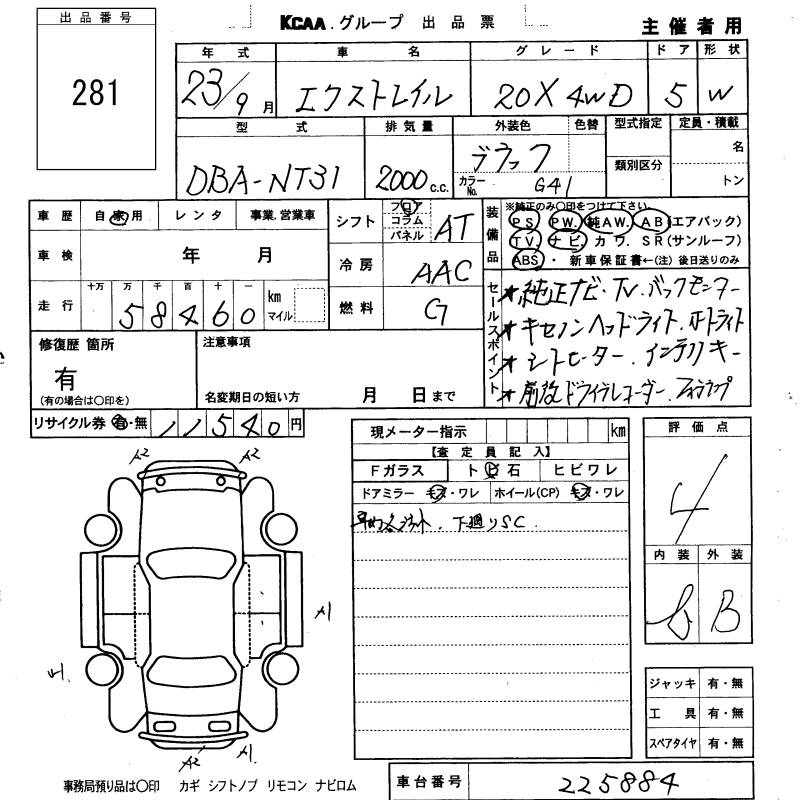 出品番号
281
KCAA.グループ 出品票
主催者用
年式 車名 グレード ドア 形状
23/9月 エクストレイル 20X 4WD 5 W
型式 排気量 外装色 色替 型式指定 定員・積載
DBA-NT31 2000c.c. ブラック
カラーNo. G41
名
類別区分
トン
車歴 自家用 レンタ 事業.営業車
シフト フロア コラム パネル AT
装備品 ※純正のみ〇印をつけて下さい。
PS PW. 純AW. AB(エアバック)
TV. ナビ. カワ. SR(サンルーフ)
ABS ・ 新車保証書←(注)後日送りのみ
車検 年 月
冷房 AAC
走行 十万 万 千 百 十 一
58460 km マイル
燃料 G
セールスポイント
★純正ナビ・TV.バックモニター
★キセノンヘッドライト.オートライト
★シートヒーター.インテリキー
★前後ドライブレコーダー.
修復歴 箇所
有
(有の場合は〇印を)
注意事項
名変期日の短い方 月 日まで
リサイクル券 有・無 11540円
現メーター指示 km
【査定員記入】
Fガラス トビ石 ヒビワレ
ドアミラー キズ・ワレ ホイール(CP) キズ・ワレ
下廻りSC
評価点
4
内装 外装
B
A2 A2
A1
A2 A1
ジャッキ 有・無
工具 有・無
スペアタイヤ 有・無
事務局預り品は〇印 カギ シフトノブ リモコン ナビロム
車台番号 225884